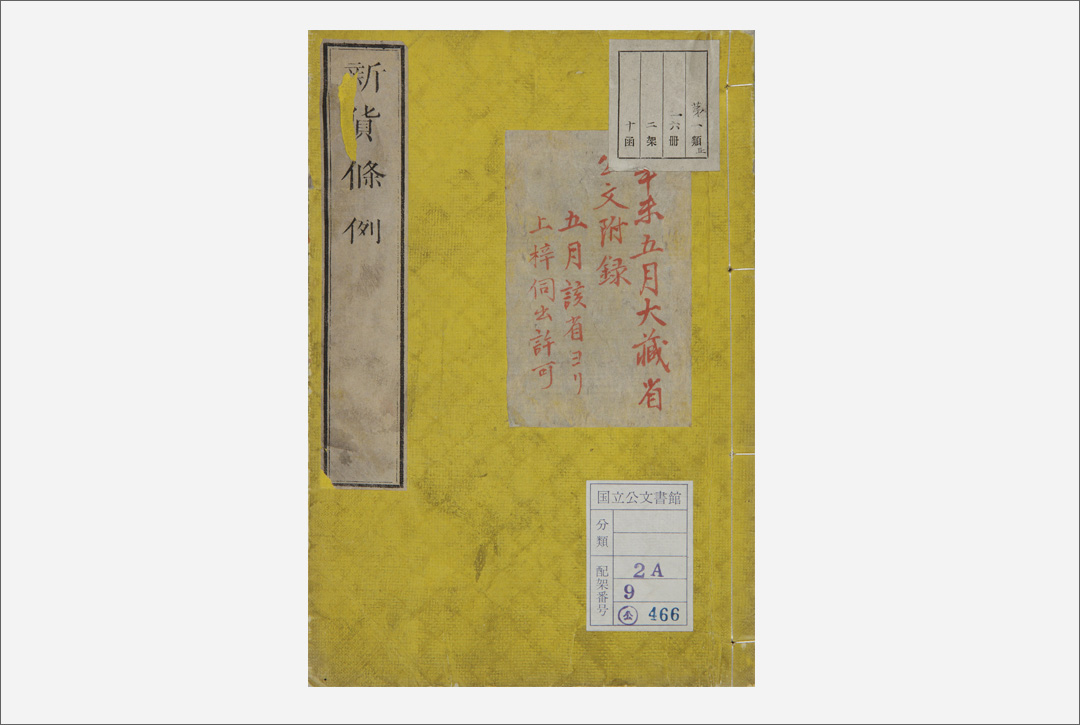 第一類
一六冊
二架
十函
辛未五月大藏省
公文附録
五月該省ヨリ
上梓伺出許可
新貨條例
国立公文書館
分類
配架番号
2A
9
公 466